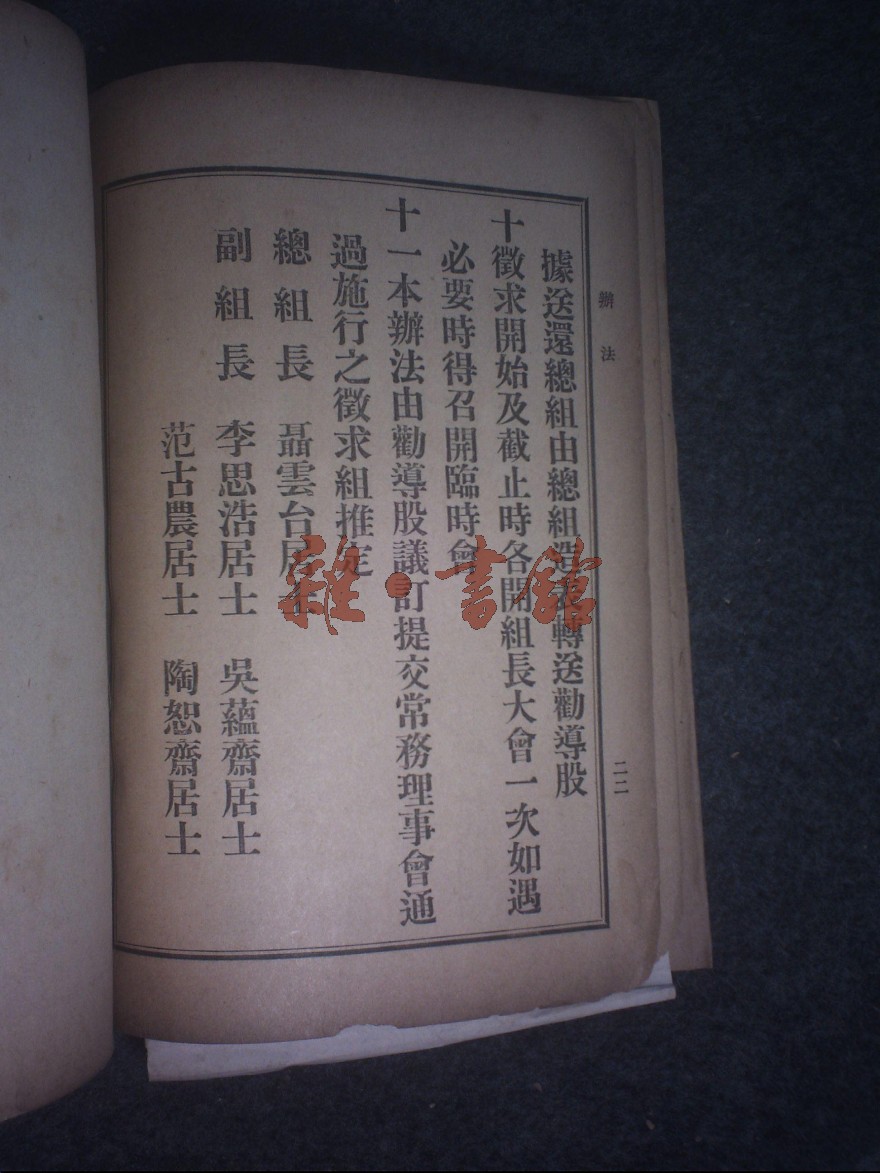 辦法
二二
據送還總組由總組造表轉送勸導股
十徵求開始及截止時各開組長大會一次如遇
必要時得召開臨時會
十一本辦法由勸導股議訂提交常務理事會通
過施行之徵求組推定
總組長 聶雲台居士
副組長 李思浩居士 吳蘊齋居士
范古農居士 陶恕齋居士
雜·書館